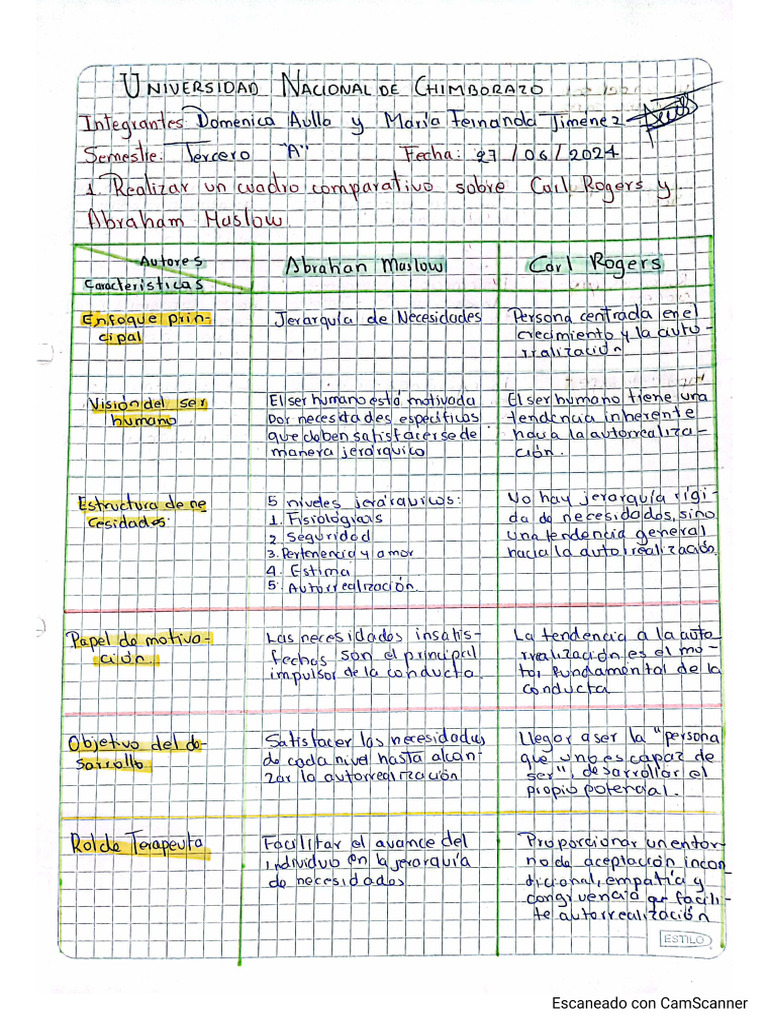 UNIVERSIDAD NACIONAL DE CHIMBORAZO
Integrantes: Domenica Aulla y María Fernanda Jimenez
Semestre: Tercero "A" Fecha: 27/06/2024
1. Realizar un cuadro comparativo sobre Carl Rogers y
Abraham Maslow
Autores
Características
Abrahan Maslow
Carl Rogers
Enfoque prin-
cipal
Jerarquía de Necesidades
Persona centrada en el
crecimiento y la auto-
rralización
Visión del ser
humano
El ser humano está motivada
por necesidades específicas
que deben satisfacerse de
manera jerárquico
El ser humano tiene una
tendencia inherente
hacia la autorrealiza-
ción.
Estructura de ne
cesidades:
5 niveles jerárquicos:
1. Fisiológias
2 Seguridad
3. Pertenencia y amor
4. Estima
5. Autorrealización.
No hay jerarquía rígi-
da de necesidades, sino
una tendencia general
hacia la autorrealización.
Papel de motiva-
ción.
Las necesidades insatis-
fechas son el principal
impulsor de la conducta.
La tendencia a la auto
rralización es el mo-
tor fundamental de la
conducta
Objetivo del de-
sarrollo
Satisfacer las necesidades
de cada nivel hasta alcan-
zar la autorrealización
Llegar a ser la "persona
que uno es capaz de
ser", desarrollar el
propio potencial.
Rol de Terapeuta
Facilitar el avance del
individuo en la jerarquía
de necesidades
Proporcionar un entor-
no de aceptación incon
dicional, empatía y
congruencia que facili-
te autorrealización
ESTILO
Escaneado con CamScanner